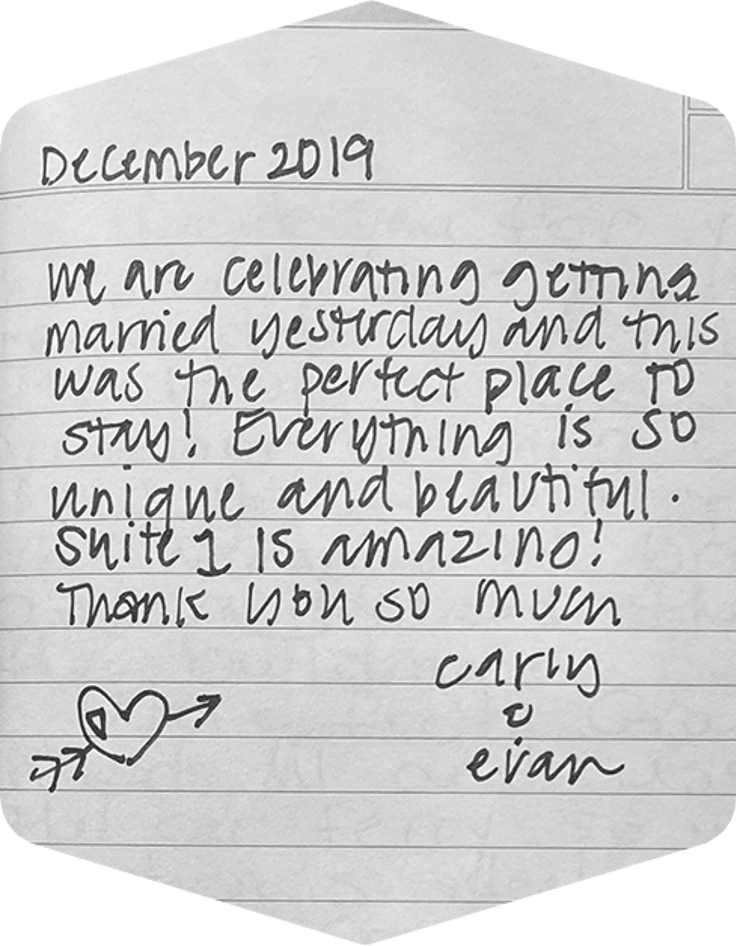 December 2019
we are celebrating getting
married yesterday and this
was the perfect place to
stay! Everything is so
unique and beautiful.
Suite 1 is amazing!
Thank you so much
carly
&
evan